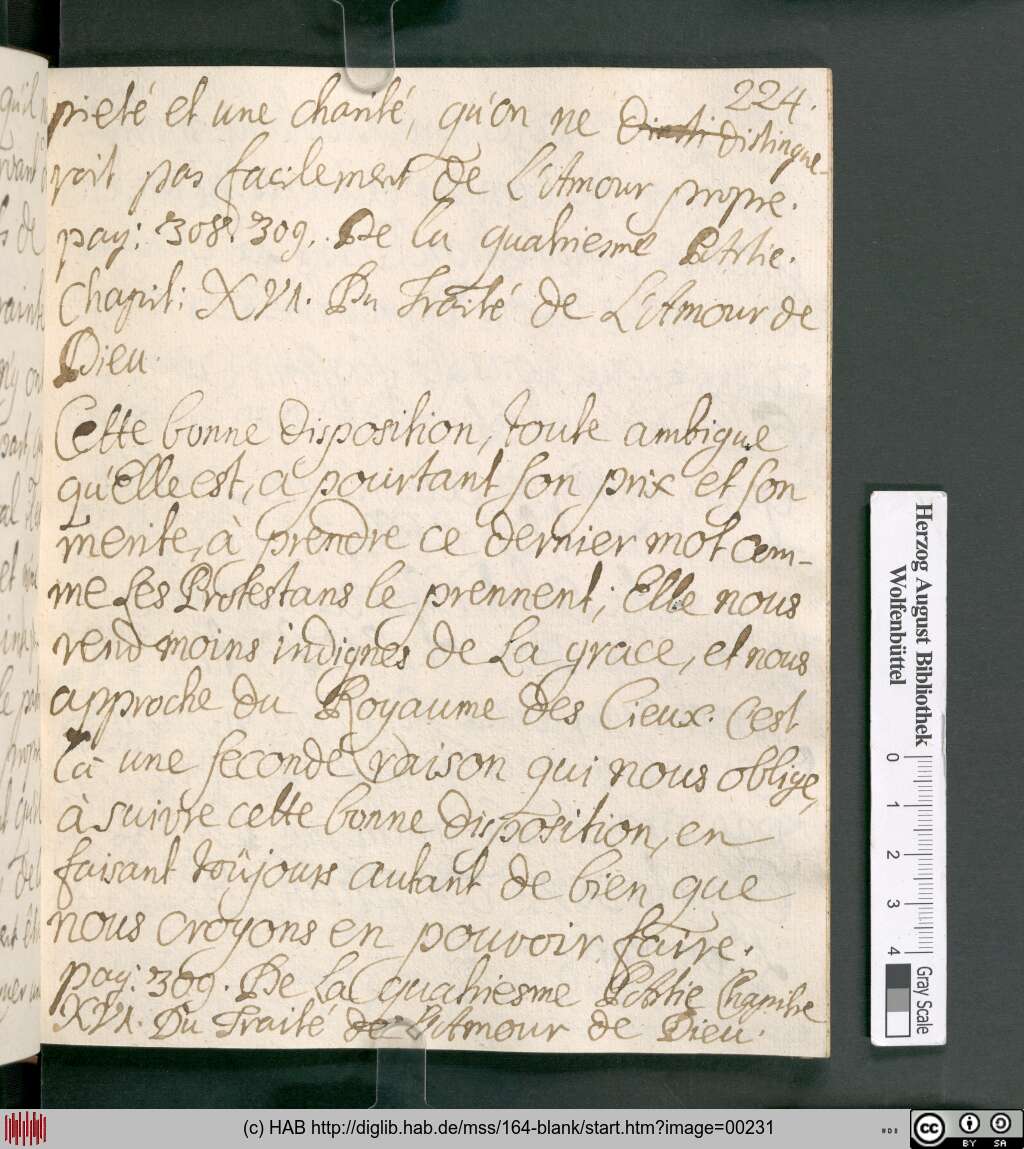 224.
pieté et une charité, qu'on ne distingue-
roit pas facilement de L'Amour propre.
pag: 308. 309. De la quatriesme Partie.
Chapit: XVI. Du Traité de L'Amour de
Dieu.
Cette bonne disposition, toute ambigue
qu'Elle est, a pourtant son prix et son
merite, à prendre ce dernier mot com-
me Les Protestans le prennent; Elle nous
rend moins indignes de La grace, et nous
approche du Royaume des Cieux. C'est
là une seconde raison qui nous oblige,
à suivre cette bonne disposition, en
faisant toûjours autant de bien que
nous croyons en pouvoir faire.
pag: 309. De la quatriesme Partie Chapitre
XVI. Du Traité de L'Amour de Dieu.
Herzog August Bibliothek
Wolfenbüttel
0 1 2 3 4
Gray Scale
(c) HAB http://diglib.hab.de/mss/164-blank/start.htm?image=00231
cc BY SA